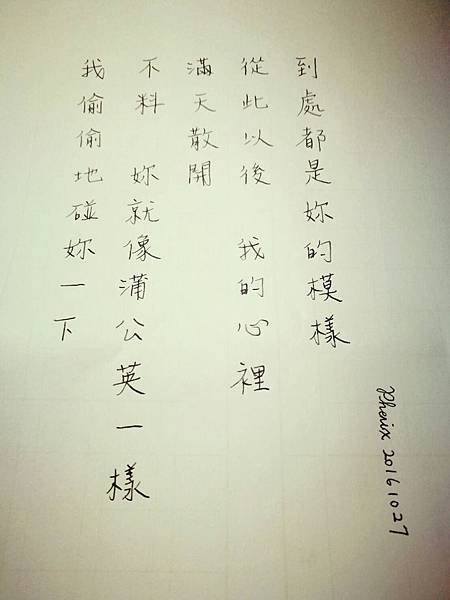 我偷偷地碰妳一下
不料 妳就像蒲公英一樣
滿天散開
從此以後 我的心裡
到處都是妳的模樣
Phenix 20161027